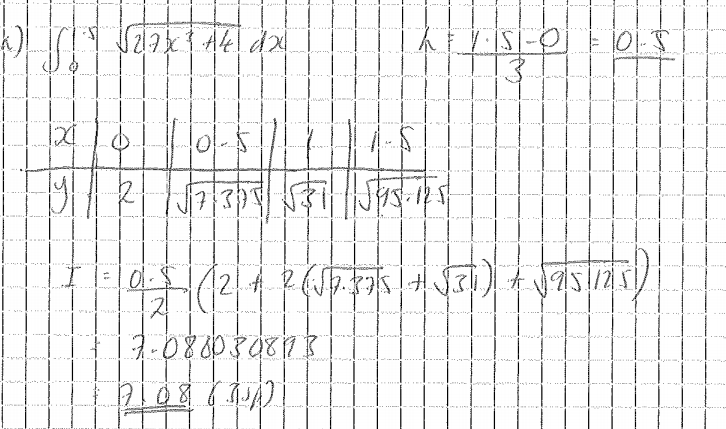 a) ∫₀^1.5 √(27x³+4) dx h = (1.5-0)/3 = 0.5
x | 0 | 0.5 | 1 | 1.5
y | 2 | √7.375 | √31 | √95.125
I = 0.5/2 (2 + 2(√7.375 + √31) + √95.125)
= 7.080030893
= 7.08 (3sf)